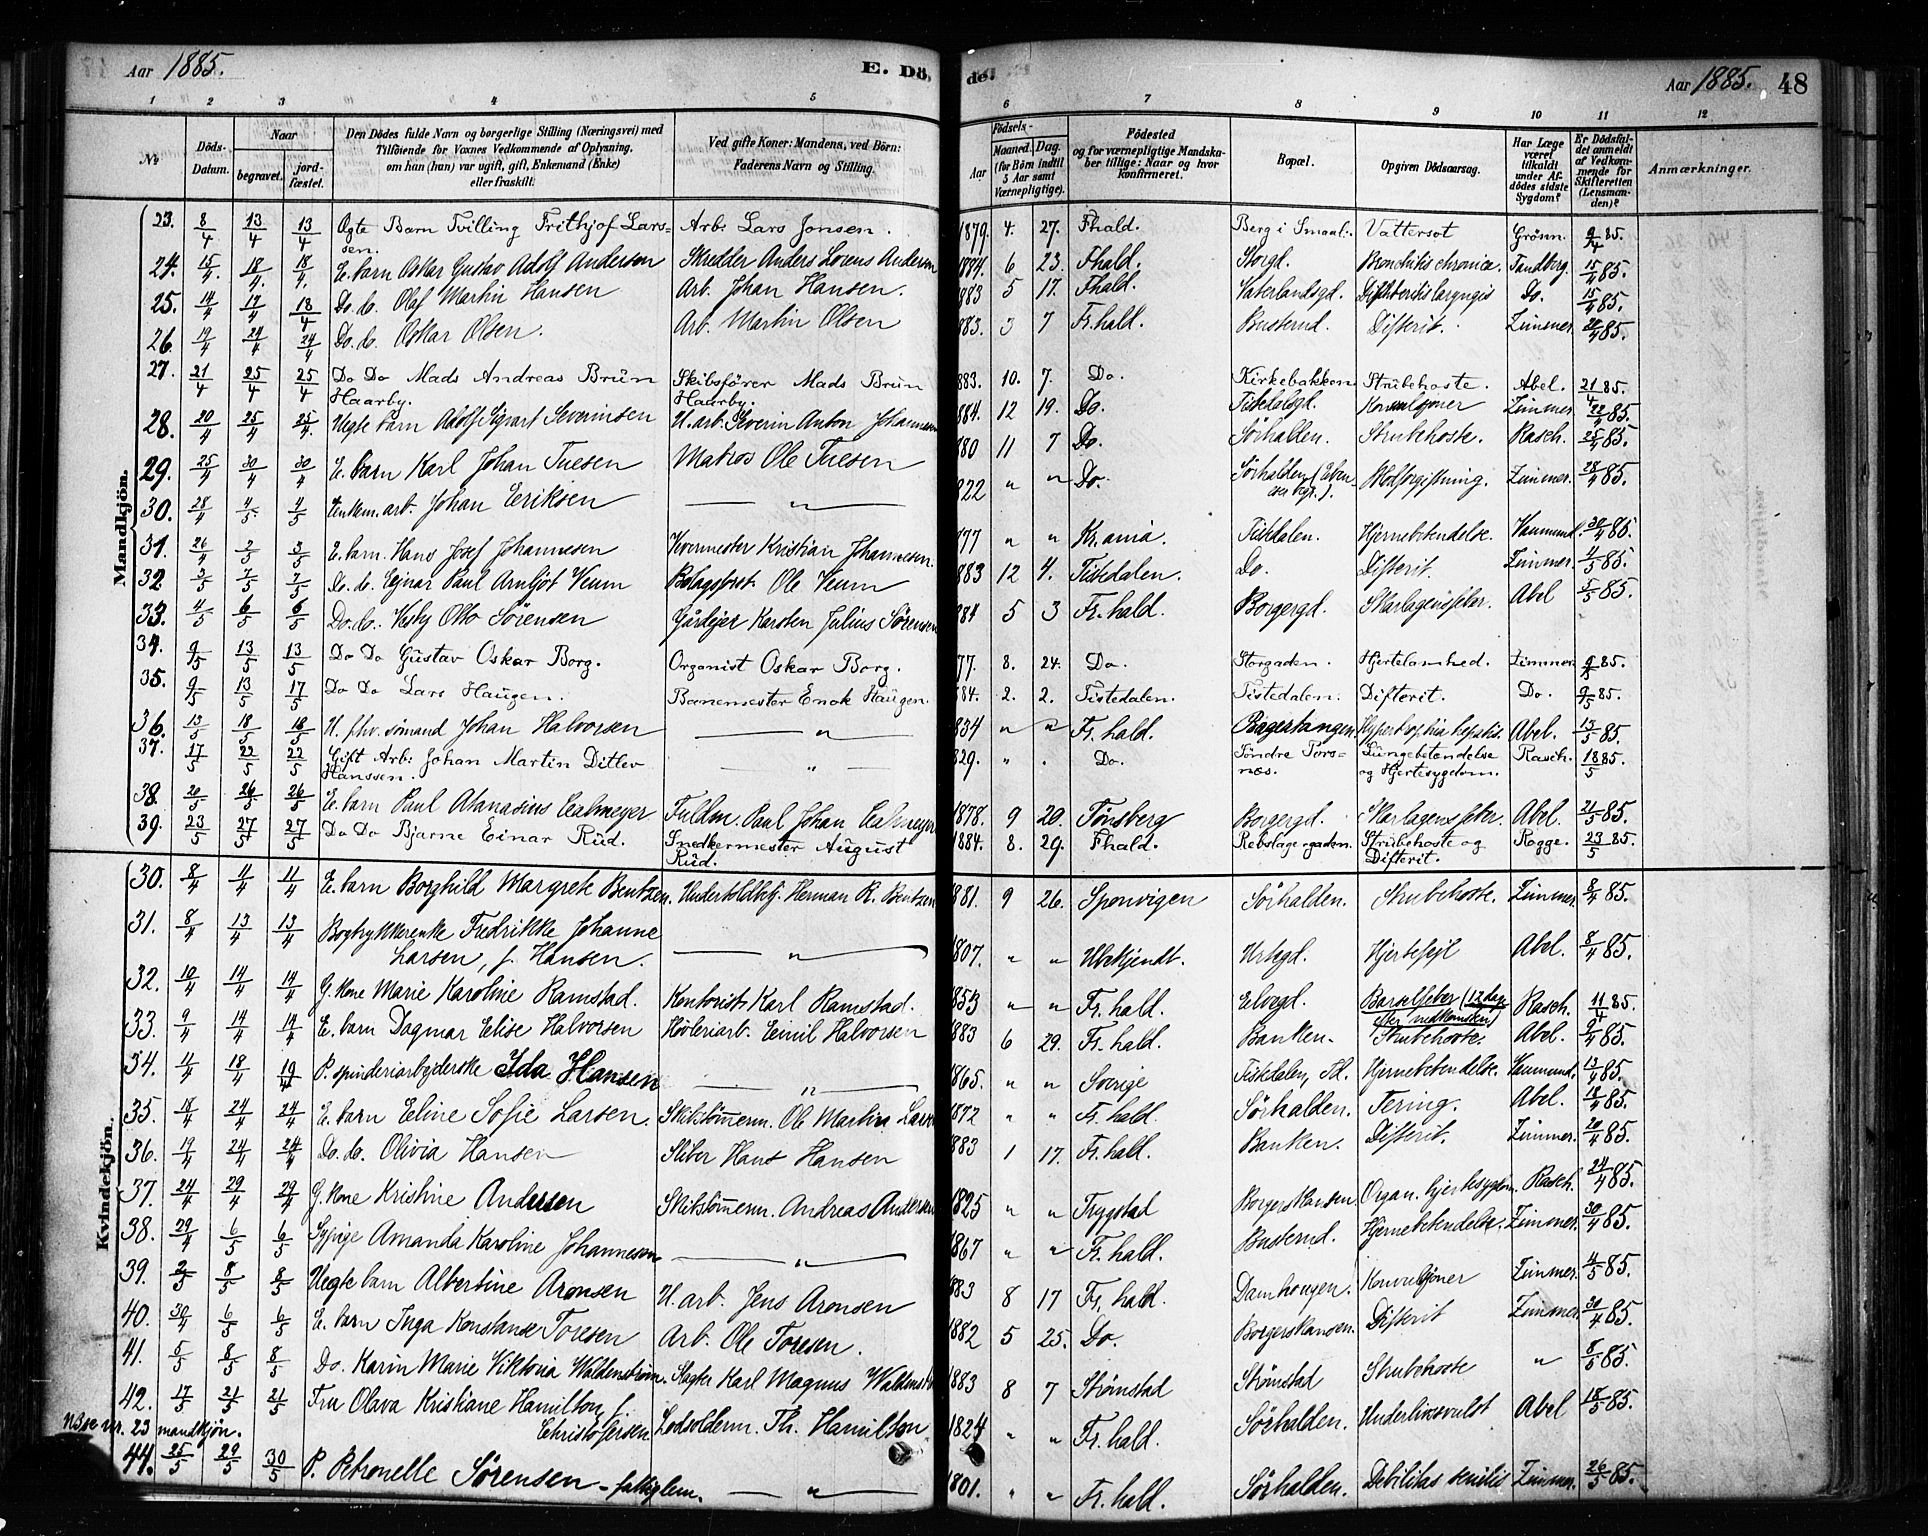 Aar 1885. E. Dö, de. Aar 1885. 48
1 2 3 4 5 6 7 8 9 10 11 12
No Döds-Datum. Naar begravet. jord-fæstet. Den Dödes fulde Navn og borgerlige Stilling (Næringsvei) med Tilföiende for Voxnes Vedkommende af Oplysning, om han (hun) var ugift, gift, Enkemand (Enke) eller fraskilt. Ved gifte Koner: Mandens, ved Börn: Faderens Navn og Stilling. Födsels- Aar Maaned. Dag. (for Börn indtil 5 Aar samt Værnepligtige). Födested og for værnepligtige Mandska-ber tillige: Naar og hvor konfirmeret. Bopæl. Opgiven Dödsaarsag. Har Læge været tilkaldt under Af-dödes sidste Sygdom? Er Dödsfal-det anmeldt af Vedkom-mende for Skifteretten (Lensman-den)? Anmærkninger.
Mandkjön.
23. 8/4 13/4 13/4 Ægte Barn Tvilling Frithjof Lars-sen. Arb. Lars Jonsen. 1879. 4. 27. Fhald. Berg i Smaal. Vattersot Grönn. 9/4 85.
24. 15/4 18/4 18/4 E. barn Oskar Gustav Adolf Andersen Skredder Anders Lorens Andersen 1884. 6 23. Fhald. Storgd. Bronchitis chronica. Tandberg 15/4 85.
25. 14/4 17/4 18/4 Do. do. Olaf Martin Hansen Arb. Johan Hansen. 883 5 17. Fhald. Vaterlandsgd. Difhteritis laryngis Do. 15/4 85.
26. 19/4 24/4 24/4 Do. do. Oskar Olsen. Arb. Martin Olsen 883. 3 7 Fr.hald. Busterud. Difterit. Zimmer. 20/4 85.
27. 21/4 25/4 25/4 Do Do Mads Andreas Brün Haarby. Skibsförer Mads Brün Haarby. 883. 10. 7. Do. Kirkebakken Strubehoste. Abel. 21/4 85.
28. 20/4 25/4 25/4 Uegte barn Adolf Sigvart Severinsen U. arb. Severin Anton Johannesen 884. 12 19. Do. Tistedalsgd. Konvulsjoner Zimmer. 22/4 85.
29. 25/4 30/4 30/4 E. barn Karl Johan Tuesen Matros Ole Tuesen 880 11 7 Do. Sørhalden. Strubehoste. Rasch. 25/4 85.
30. 28/4 4/5 4/5 Enkem. arb. Johan Eriksen — " — 822 " " Do. Sørhalden Blodforgiftning. Zimmer. 28/4 85.
31. 26/4 3/5 3/5 E. barn Hans Josef Johannesen Kvermester Kristian Johannesen. 877 " " Kr.ania. Tistedalen. Hjernebetendelse. Vaumund. 30/4 85.
32 3/5 7/5 7/5 Do. do. Ejnar Paul Arnljot Veum Bolagsfret. Ole Veum 883 12 4. Tistedalen. Do. Difterit. Zimmer. 4/5 85.
33. 4/5 6/5 6/5 Do. do. Otto Sørensen Gårdejer Karsten Julius Sørensen 884 5 3 Fr. hald. Borgergd. Skarlagensfeber. Abel 5/5 85.
34. 9/5 13/5 13/5 Do Do Gustav Oskar Borg. Organist Oskar Borg. 77. 8. 24. Do. Storgaden. Hjertelamhed. Zimmer 9/5 85.
35. 9/5 13/5 17/5 Do Do Lars Haugen. Banemester Enok Haugen. 84. 2. 2. Tistedalen. Tistedalen. Difterit. Do. 9/5 85.
36. 13/5 18/5 18/5 U. fhv. sömand Johan Halvorsen — " — 834 " " Fr. hald. Bagertangen Hypertrophia hepatis. Abel. 13/5 85.
37. 17/5 22/5 22/5 Gift Arb: Johan Martin Ditlev Hanssen. — " — 829. " . Do. Söndre Tors-næs. Lungebetendelse og Hjertesygdom. Rasch. 18/5 85.
38. 20/5 26/5 26/5 E. barn Paul Atanasius Fuldm. Paul Johan 1878. 9 20. Tønsberg Borgergd. Skarlagensfeber. Abel. 21/5 85.
39. 23/5 27/5 27/5 Do Do Bjarne Einar Rüd. Snedkermester August Rüd. 1884. 8. 29. Fhald. Rebslagergaden. Strubehoste og Difterit. Rogge. 23/5 85.
Kvindekjön.
30. 8/4 11/4 11/4 E. barn Borghild Margrete Bentzen. Undertoldbetj. Herman R. Bentzen 1881. 9 26. Sponvigen Sørhalden. Strubehoste. Zimmer. 8/4 85.
31. 8/4 13/4 13/4 Bogtrykkerenke Fredrikke Johanne
Larsen, f. Hansen. — " — 1807. " " Ubekjendt. Urtegd. Hjertefejl Abel. 8/4 85.
32. 10/4 14/4 14/4 G. kone Marie Karoline Ramstad. Kontorist Karl Ramstad. 1853 " " Fr. hald. Elvegd. Barselfeber (12 dage efter nedkomsten) Rasch. 11/4 85.
33. 9/4 14/4 14/4 E. barn Dagmar Elise Halvorsen Høvleriarb. Emil Halvorsen 1883 6 29. Fr. hald. Banken. Strubehoste. Abel. 9/4 85.
34. 11/4 18/4 19/4 P. spinderiarbejderske Ida Hansen — " — 1865. " " Sverige Tistedalen, Hjernebetendelse. Vaumund. 13/4 85.
35. 17/4 24/4 24/4 E. barn Eline Sofie Larsen. Skibstømmerm. Ole Martin Larsen 1872 " " Fr. hald. Sørhalden. Tering. Abel. 18/4 85.
36. 19/4 24/4 24/4 Do. do. Olivia Hansen Sliber Hans Hansen 1883 1 17. Fr. hald. Banken. Difterit. Zimmer. 20/4 85.
37. 24/4 29/4 29/4 G. kone Kristine Andersen Skibstømmerm. Andreas Andersen 1825 " " Trygstad Borgerskansen Organ. hjertesygdom. Rasch. 24/4 85.
38. 29/4 6/5 6/5 Sypige Amanda Karoline Johannesen — " — 1867 " " Fr. hald. Busterud. Hjernebetendelse. Zimmer. 30/4 85.
39. 2/5 8/5 8/5 Uegte barn Albertine Aronsen U. arb. Jens Aronsen 883 8 17 Fr. hald. Damhaugen. Konvulsjoner Zimmer. 4/5 85.
40. 30/4 6/5 6/5 E. barn Inga Konstanse Toresen Arb. Ole Toresen. 1882 5 25. Do. Borgerskansen. Difterit Zimmer. 30/4 85.
41. 5/5 8/5 8/5 Do. Karin Marie Viktoria Waldenstrøm. Slagter Karl Magnus 1883 8 7 Strømstad Strømstad Strubehoste " 8/5 85.
42. 17/5 21/5 21/5 Fru Olava Kristiane Hamilton, f.
Christofersen Lodsoldenn. Th. Hamilton 1824 " " Fr. hald. Sørhalden. Underlivssvulst Abel 18/5 85.
NB se nr. 23 mandkjøn.
44. 25/5 29/5 30/5 P. Petronelle Sørensen - fattiglem. — " — 1801. " " Fr. hald. Sørhalden. Debilitas senilis Zimmer. 26/5 85.